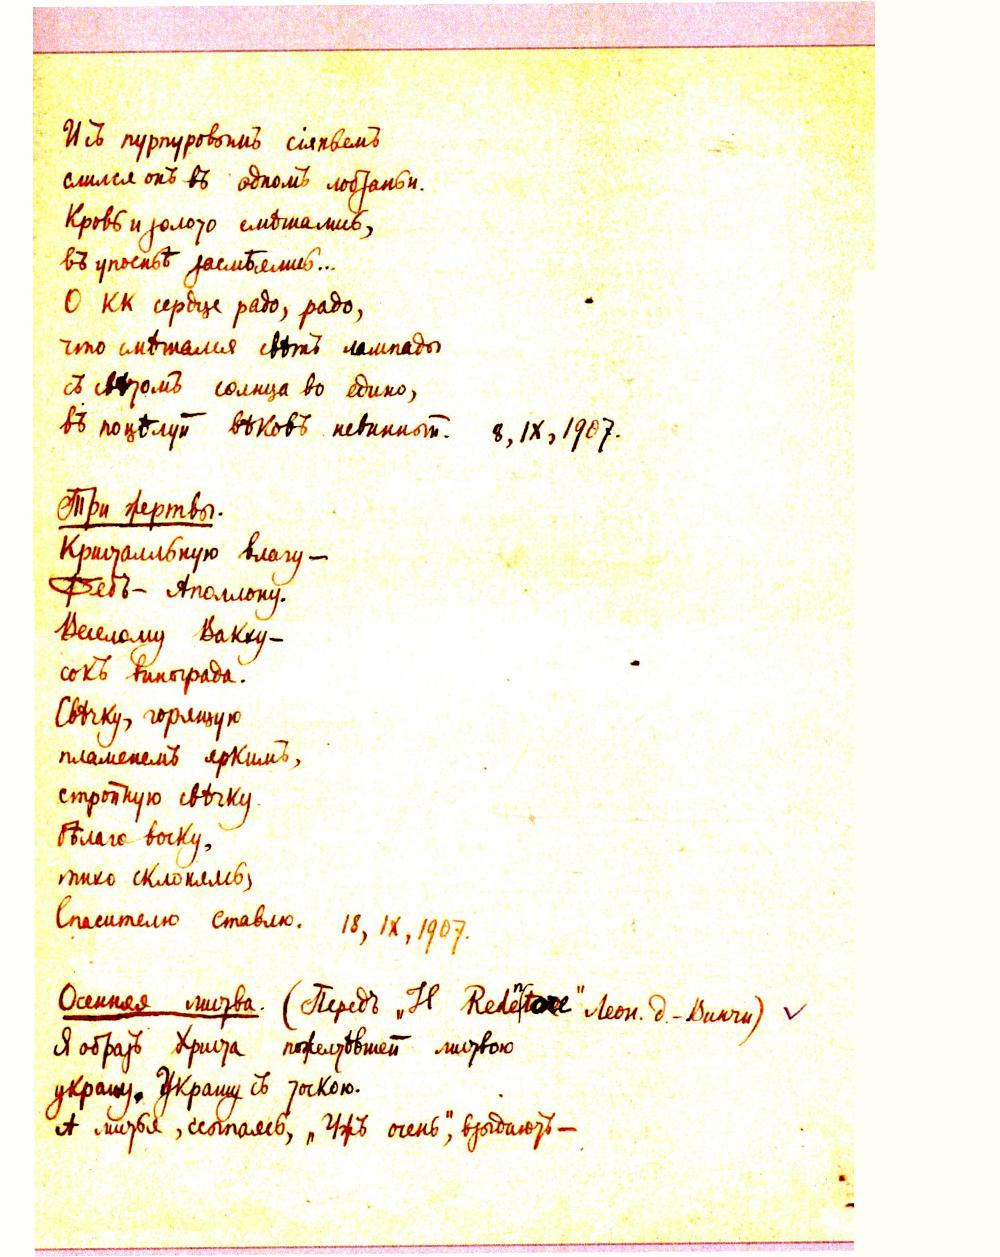 И съ пурпуровымъ сіяньемъ
слился онъ въ одномъ лобзаньи.
Кровь и золото смѣшались,
въ упоеньѣ засмѣялись...
О КК сердце радо, радо,
что смѣшался свѣтъ лампады
съ свѣтомъ солнца во едино,
въ поцѣлуй вѣковъ невинной. 8, IX, 1907.
Три жертвы.
Кристалльную влагу —
Фебъ – Аполлону.
Веселому Вакху –
сокъ винограда.
Свѣчку, горящую
пламенемъ яркимъ,
стройную свѣчку
бѣлаго воску,
тихо склоняясь,
Спасителю ставлю. 18, IX, 1907.
Осенняя листва. (Передъ „Il Redentore" Леон. д.-Винчи)
Я образъ Христа пожелтѣвшей листвою
украшу. Украшу съ тоскою.
А листья, ссыпаясь, „Ужъ осень", взрыдаютъ —